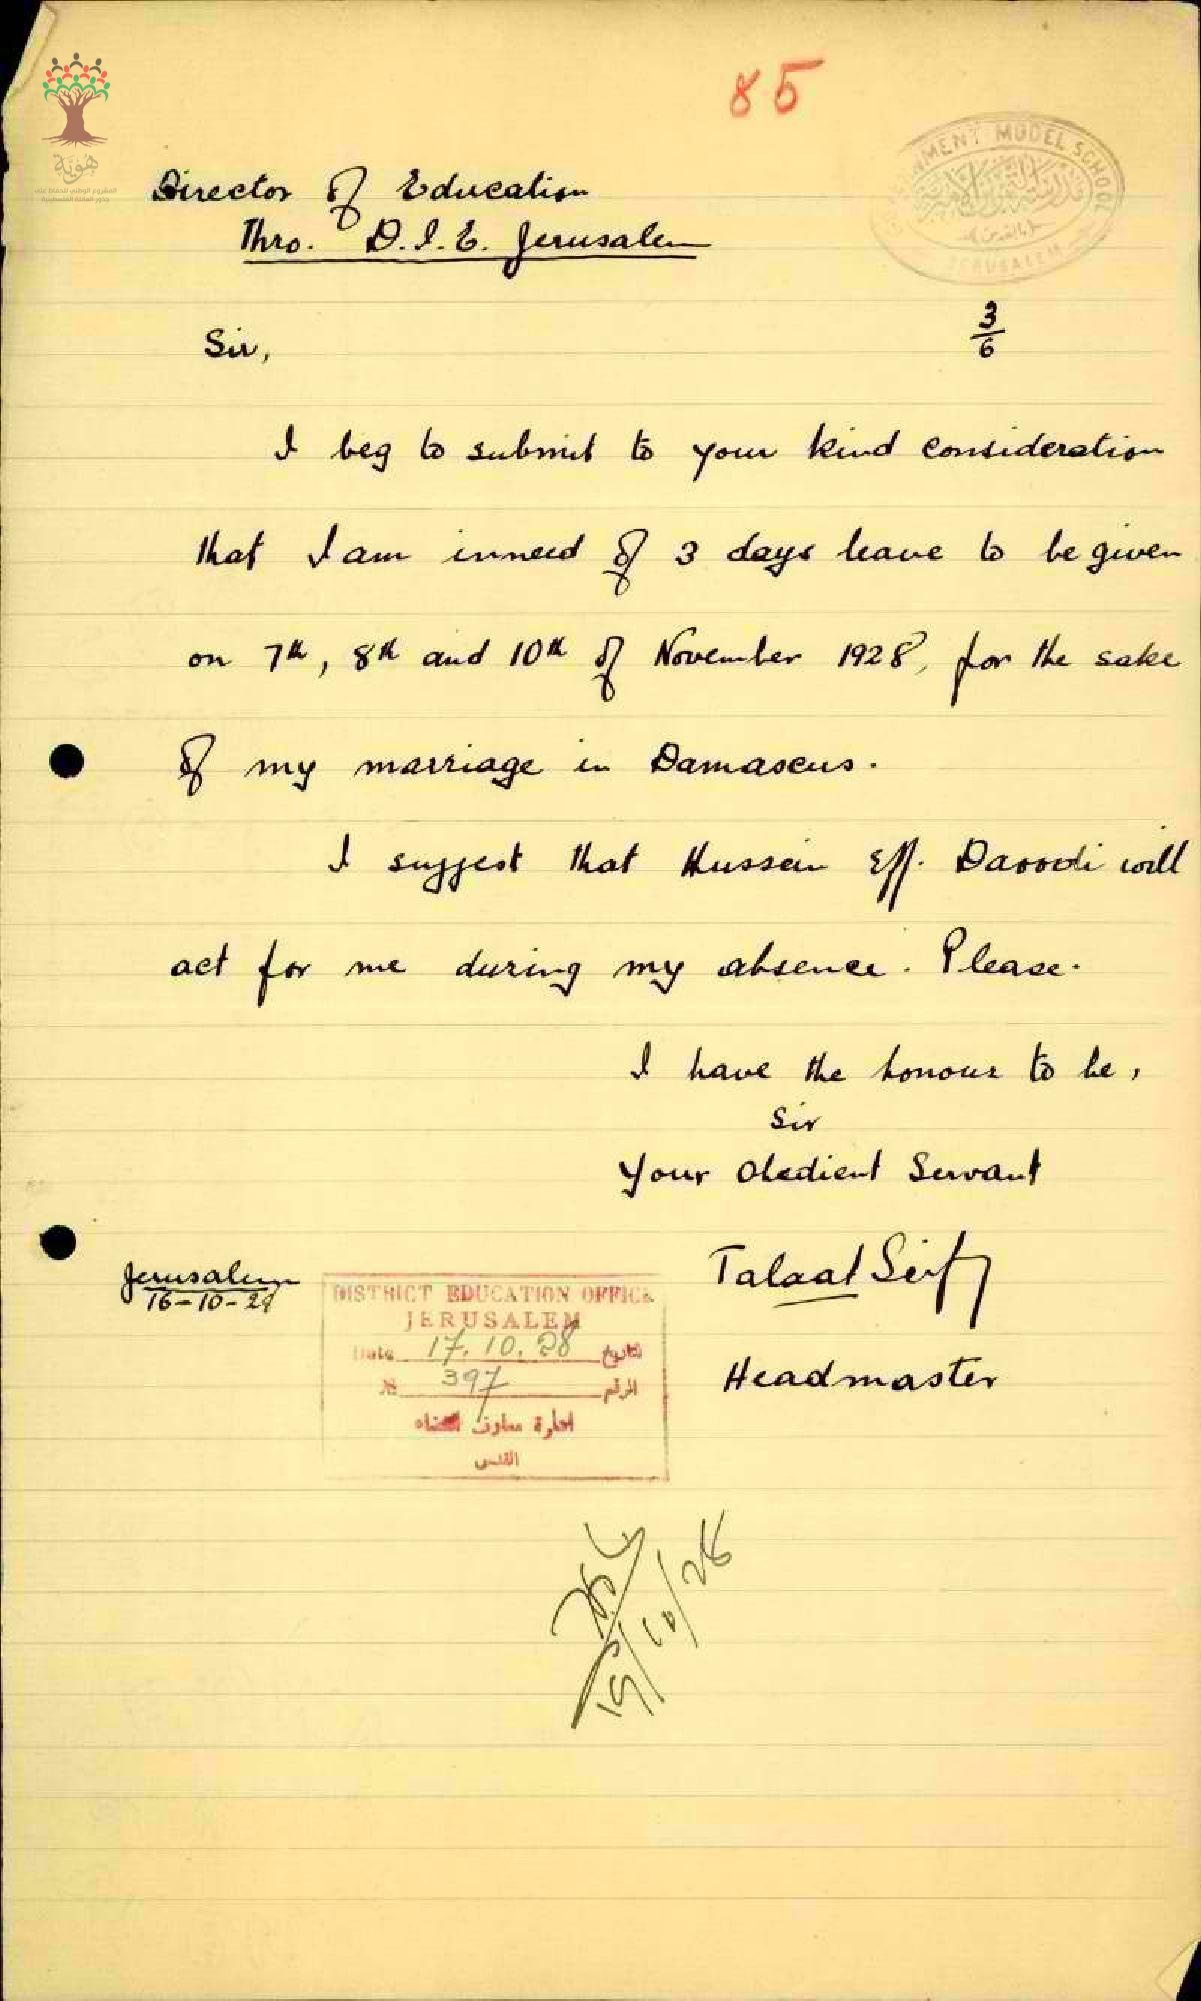 85
هوية
GOVERNMENT MODEL SCHOOL
JERUSALEM
Director of Education
Thro. D.I.E. Jerusalem
3/6
Sir,
I beg to submit to your kind consideration
that I am inneed of 3 days leave to be given
on 7th, 8th and 10th of November 1928, for the sake
of my marriage in Damascus.
I suggest that Hussein Eff. Daoodi will
act for me during my absence. Please.
I have the honour to be,
Sir
Your Obedient Servant
Talaat Seify
Headmaster
Jerusalem
16-10-28
DISTRICT EDUCATION OFFICE
JERUSALEM
Date 17.10.28 التاريخ
№ 397 الرقم
ادارة معارف القضاء
القدس
19/10/28